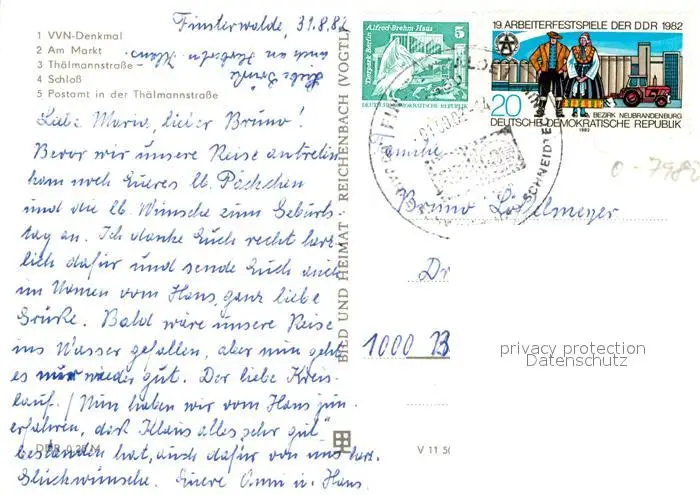 Finsterwalde, 31.8.82
1 VVN-Denkmal
2 Am Markt
3 Thälmannstraße
4 Schloß
5 Postamt in der Thälmannstraße
Liebe Maria, lieber Bruno!
Bevor wir unsere Reise antreten
kam noch Eueres lb. Päckchen
und die lb. Wünsche zum Geburts
tag an. Ich danke Euch recht herz
lich dafür und sende Euch auch
im Namen vom Hans, ganz liebe
Grüße. Bald wäre unsere Reise
ins Wasser gefallen, aber nun geht
es wieder gut. Der liebe Kreis-
lauf. / Nun haben wir vom Hans jun.
erfahren, daß Klaus alles sehr gut
bestanden hat, auch dafür von uns herz.
Glückwünsche. Euere Anni u. Hans.
DDR 0,20 M
BILD UND HEIMAT · REICHENBACH (VOGTL
V 11 50
Alfred-Brehm Haus
Tierpark Berlin
5
DEUTSCHE DEMOKRATISCHE REPUBLIK
19. ARBEITERFESTSPIELE DER DDR 1982
20
BEZIRK NEUBRANDENBURG
DEUTSCHE DEMOKRATISCHE REPUBLIK
1982
SCHNEIDER
0-7982
Familie
Bruno
Dr
1000 B
privacy protection
Datenschutz